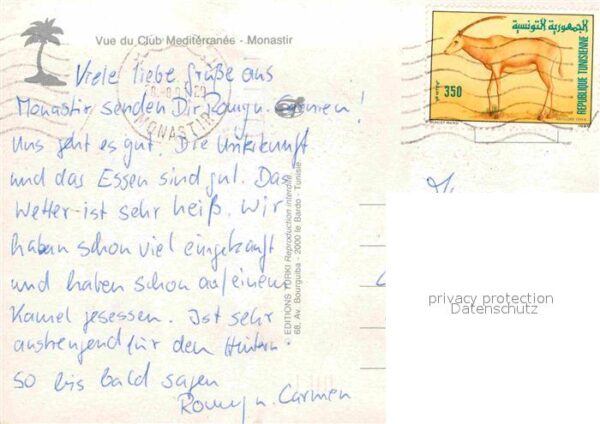 Vue du Club Mediterranés - Monastir
Viele liebe Grüße aus
Monastir senden Dir Romy u. Carmen!
Uns geht es gut. Die Unterkunft
und das Essen sind gut. Das
Wetter ist sehr heiß. Wir
haben schon viel eingekauft
und haben schon auf einem
Kamel gesessen. Ist sehr
anstrengend für den Hintern.
So bis bald sagen
Romy u. Carmen
MONASTIR
EDITIONS TURKI Reproduction interdite
68, Av. Bourguiba - 2000 le Bardo - Tunisie
الجمهورية التونسية
REPUBLIQUE TUNISIENNE
350
privacy protection
Datenschutz